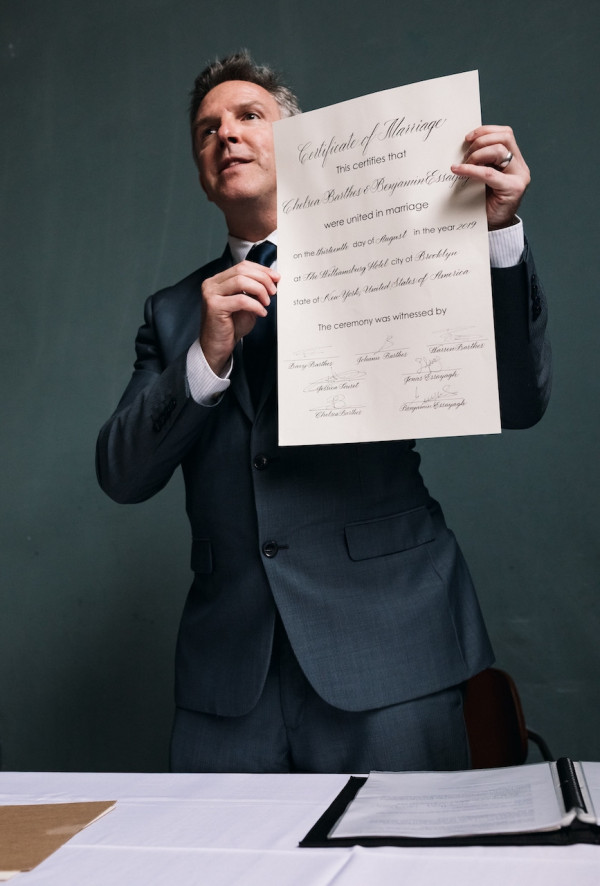 Certificate of Marriage
This certifies that
Chelsea Barthes & Benjamin Essayag
were united in marriage
on the thirteenth day of August in the year 2019
at The Williamsburg Hotel city of Brooklyn
state of New York, United States of America
The ceremony was witnessed by
Barry Barthes Johana Barthes Warren Barthes
Jonas Essayagh
Chelsea Barthes Benjamin Essayagh